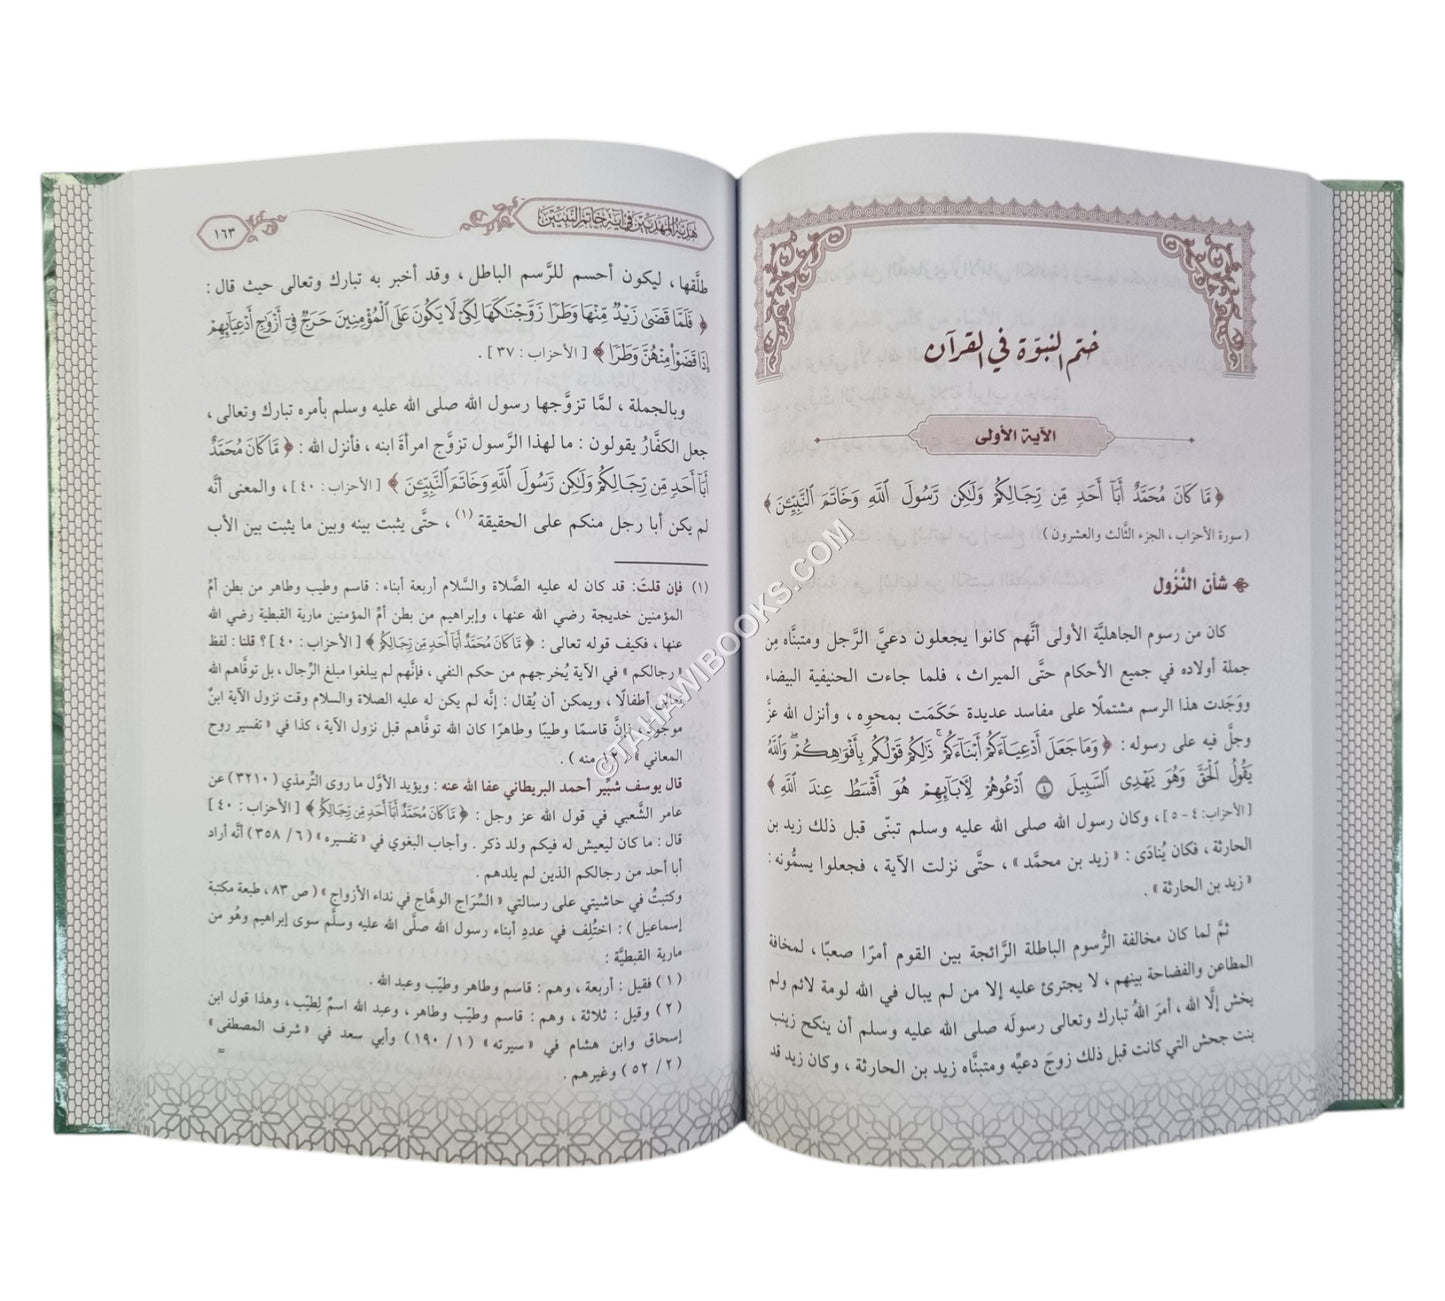 ختم النبوّة في القرآن
الآية الأولى
﴿ مَّا كَانَ مُحَمَّدٌ أَبَآ أَحَدٍ مِّن رِّجَالِكُمْ وَلَٰكِن رَّسُولَ ٱللَّهِ وَخَاتَمَ ٱلنَّبِيِّـۧنَ ﴾
( سورة الأحزاب ، الجزء الثَّالث والعشرون )
شأن النُّزُول
كان من رسوم الجاهليَّة الأولى أنَّهم كانوا يجعلون دعيَّ الرَّجل ومتبنَّاه مِن
جملة أولاده في جميع الأحكام حتَّى الميراث ، فلما جاءت الحنيفية البيضاء
ووَجَدت هذا الرسم مشتملًا على مفاسد عديدة حَكَمَت بمحوِه ، وأنزل الله عزَّ
وجلَّ فيه على رسوله : ﴿ وَمَا جَعَلَ أَدْعِيَآءَكُمْ أَبْنَآءَكُمْ ۚ ذَٰلِكُمْ قَوْلُكُم بِأَفْوَٰهِكُمْ ۖ وَٱللَّهُ
يَقُولُ ٱلْحَقَّ وَهُوَ يَهْدِى ٱلسَّبِيلَ ٤ ٱدْعُوهُمْ لِـَٔابَآئِهِمْ هُوَ أَقْسَطُ عِندَ ٱللَّهِ ﴾
[ الأحزاب: ٤ - ٥ ] ، وكان رسول الله صلى الله عليه وسلم تبنّى قبل ذلك زيد بن
الحارثة ، فكان يُنادَى : « زيد بن محمَّد » ، حتَّى نزلت الآية ، فجعلوا يسمُّونه :
« زيد بن الحارثة » .
ثمَّ لما كان مخالفة الرُّسوم الباطلة الرَّائجة بين القوم أمرًا صعبًا ، لمخافة
المطاعن والفضاحة بينهم ، لا يجترئ عليه إلا من لم يبال في الله لومة لائم ولم
يخش إلَّا الله ، أمرَ اللهُ تبارك وتعالى رسولَه صلى الله عليه وسلم أن ينكح زينب
بنت جحش التي كانت قبل ذلك زوجَ دعيِّه ومتبنَّاه زيد بن الحارثة ، وكان زيد قد
هدية المهديين في آية خاتم النبيين
١٦٣
طلَّقها ، ليكون أحسم للرَّسم الباطل ، وقد أخبر به تبارك وتعالى حيث قال :
﴿ فَلَمَّا قَضَىٰ زَيْدٌ مِّنْهَا وَطَرًا زَوَّجْنَٰكَهَا لِكَىْ لَا يَكُونَ عَلَى ٱلْمُؤْمِنِينَ حَرَجٌ فِىٓ أَزْوَٰجِ أَدْعِيَآئِهِمْ
إِذَا قَضَوْا۟ مِنْهُنَّ وَطَرًا ﴾ [ الأحزاب : ٣٧ ] .
وبالجملة ، لمَّا تزوَّجها رسول الله صلى الله عليه وسلم بأمره تبارك وتعالى ،
جعل الكفَّارُ يقولون : ما لهذا الرَّسول تزوَّج امرأةَ ابنه ، فأنزل الله : ﴿ مَّا كَانَ مُحَمَّدٌ
أَبَآ أَحَدٍ مِّن رِّجَالِكُمْ وَلَٰكِن رَّسُولَ ٱللَّهِ وَخَاتَمَ ٱلنَّبِيِّـۧنَ ﴾ [ الأحزاب : ٤٠ ] ، والمعنى أنَّه
لم يكن أبا رجل منكم على الحقيقة (١) ، حتَّى يثبت بينه وبين ما يثبت بين الأب
(١) فإن قلتَ: قد كان له عليه الصَّلاة والسَّلام أربعة أبناء : قاسم وطيب وطاهر من بطن أمِّ
المؤمنين خديجة رضي الله عنها ، وإبراهيم من بطن أمِّ المؤمنين مارية القبطية رضي الله
عنها ، فكيف قوله تعالى : ﴿ مَّا كَانَ مُحَمَّدٌ أَبَآ أَحَدٍ مِّن رِّجَالِكُمْ ﴾ [ الأحزاب : ٤٠ ] ؟ قلنا : لفظ
« رجالكم » في الآية يُخرجهم من حكم النفي ، فإنَّهم لم يبلغوا مبلغ الرِّجال ، بل توفَّاهم الله
تعالى أطفالًا ، ويمكن أن يُقال : إنَّه لم يكن له عليه الصلاة والسلام وقت نزول الآية ابنٌ
موجود ، فإنَّ قاسمًا وطيبًا وطاهرًا كان الله توفَّاهم قبل نزول الآية ، كذا في « تفسير روح
المعاني » منه ) .
قال يوسف شبِّير أحمد البريطاني عفا الله عنه : ويؤيد الأوَّل ما روى التِّرمذي ( ٣٢١٠ ) عن
عامر الشَّعبي في قول الله عز وجل : ﴿ مَّا كَانَ مُحَمَّدٌ أَبَآ أَحَدٍ مِّن رِّجَالِكُمْ ﴾ [ الأحزاب : ٤٠ ]
قال : ما كان ليعيش له فيكم ولد ذكر . وأجاب البغوي في « تفسيره » ( ٦ / ٣٥٨ ) أنَّه أراد
أبا أحد من رجالكم الذين لم يلدهم .
وكتبتُ في حاشيتي على رسالتي « السِّرَاج الوهَّاج في نداء الأزواج » ( ص ٨٣ ، طبعة مكتبة
إسماعيل ) : اختُلِف في عددِ أبناء رسول الله صلَّى الله عليه وسلَّم سوى إبراهيم وهُو من
مارية القبطيَّة :
( ١ ) فقيل : أربعة ، وهم : قاسم وطاهر وطيّب وعبد الله .
( ٢ ) وقيل : ثلاثة ، وهم : قاسم وطيّب وطاهر ، وعبد الله اسمٌ لِطيّب ، وهذا قول ابن
إسحاق وابن هشام في « سيرته » ( ١ / ١٩٠ ) وأبي سعد في « شرف المصطفى »
( ٢ / ٥٢ ) وغيرهم .
=
©TAHAWIBOOKS.COM